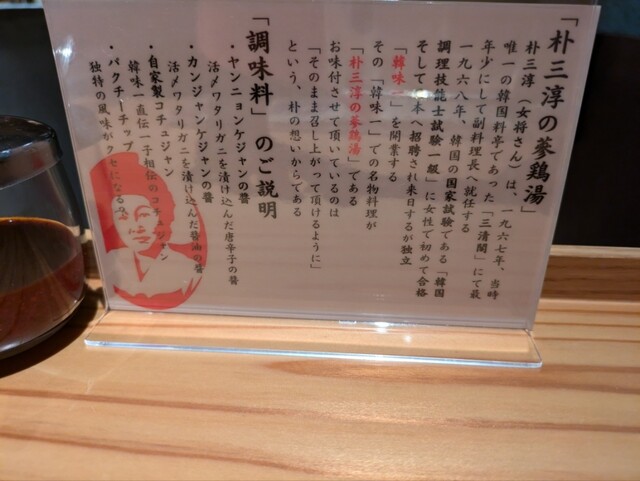 「朴三淳の蔘鶏湯」
朴三淳（女将さん）は、一九六七年、当時
唯一の韓国料亭であった「三清閣」にて最
年少にして副料理長へ就任する
一九六八年、韓国の国家試験である「韓国
調理技能士試験一級」に女性で初めて合格
そして日本へ招聘され来日するが独立
「韓味一」を開業する
その「韓味一」での名物料理が
「朴三淳の蔘鶏湯」である
お味付させて頂いているのは
「そのまま召し上がって頂けるように」
という、朴の想いからである
「調味料」のご説明
・ヤンニョンケジャンの醤
活メワタリガニを漬け込んだ唐辛子の醤
・カンジャンケジャンの醤
活メワタリガニを漬け込んだ醤油の醤
・自家製コチュジャン
韓味一直伝一子相伝のコチュジャン
・パクチーチップ
独特の風味がクセになる